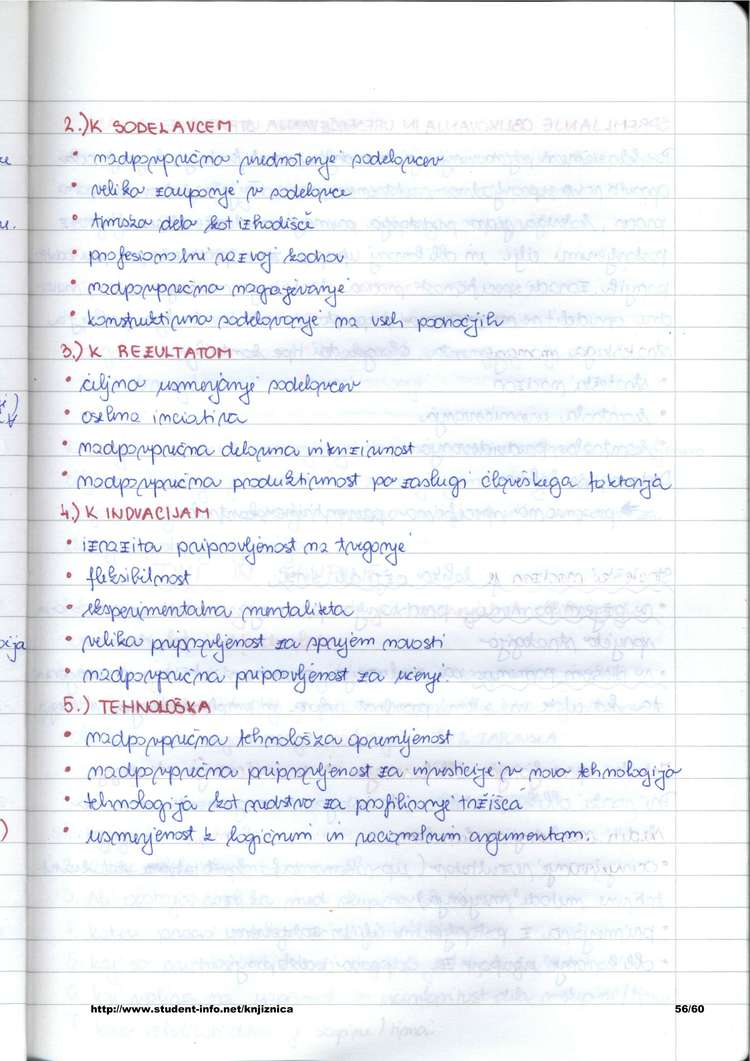 2.) K SODELAVCEM
• nadpovprečna vrednotenje sodelavcev
• velika zaupanje v sodelavce
• timska dela kot izhodišče
• profesionalni razvoj kadrov
• nadpovprečna nagrajevanje
• konstruktivna sodelovanje na vseh področjih
3.) K REZULTATOM
• ciljna usmerjanje sodelavcev
• osebna inciativa
• nadpovprečna delovna intenzivnost
• nadpovprečna produktivnost po zaslugi človeškega faktorja
4.) K INOVACIJAM
• izrazita pripravljenost na tveganje
• fleksibilnost
• eksperimentalna mentaliteta
• velika pripravljenost za sprejem novosti
• nadpovprečna pripravljenost za učenje.
5.) TEHNOLOŠKA
• nadpovprečna tehnološka opremljenost
• nadpovprečna pripravljenost za investicije v novo tehnologijo
• tehnologija kot sredstvo za profiliranje tržišča
• usmerjenost k logičnim in racionalnim argumentam.
http://www.student-info.net/knjiznica
56/60